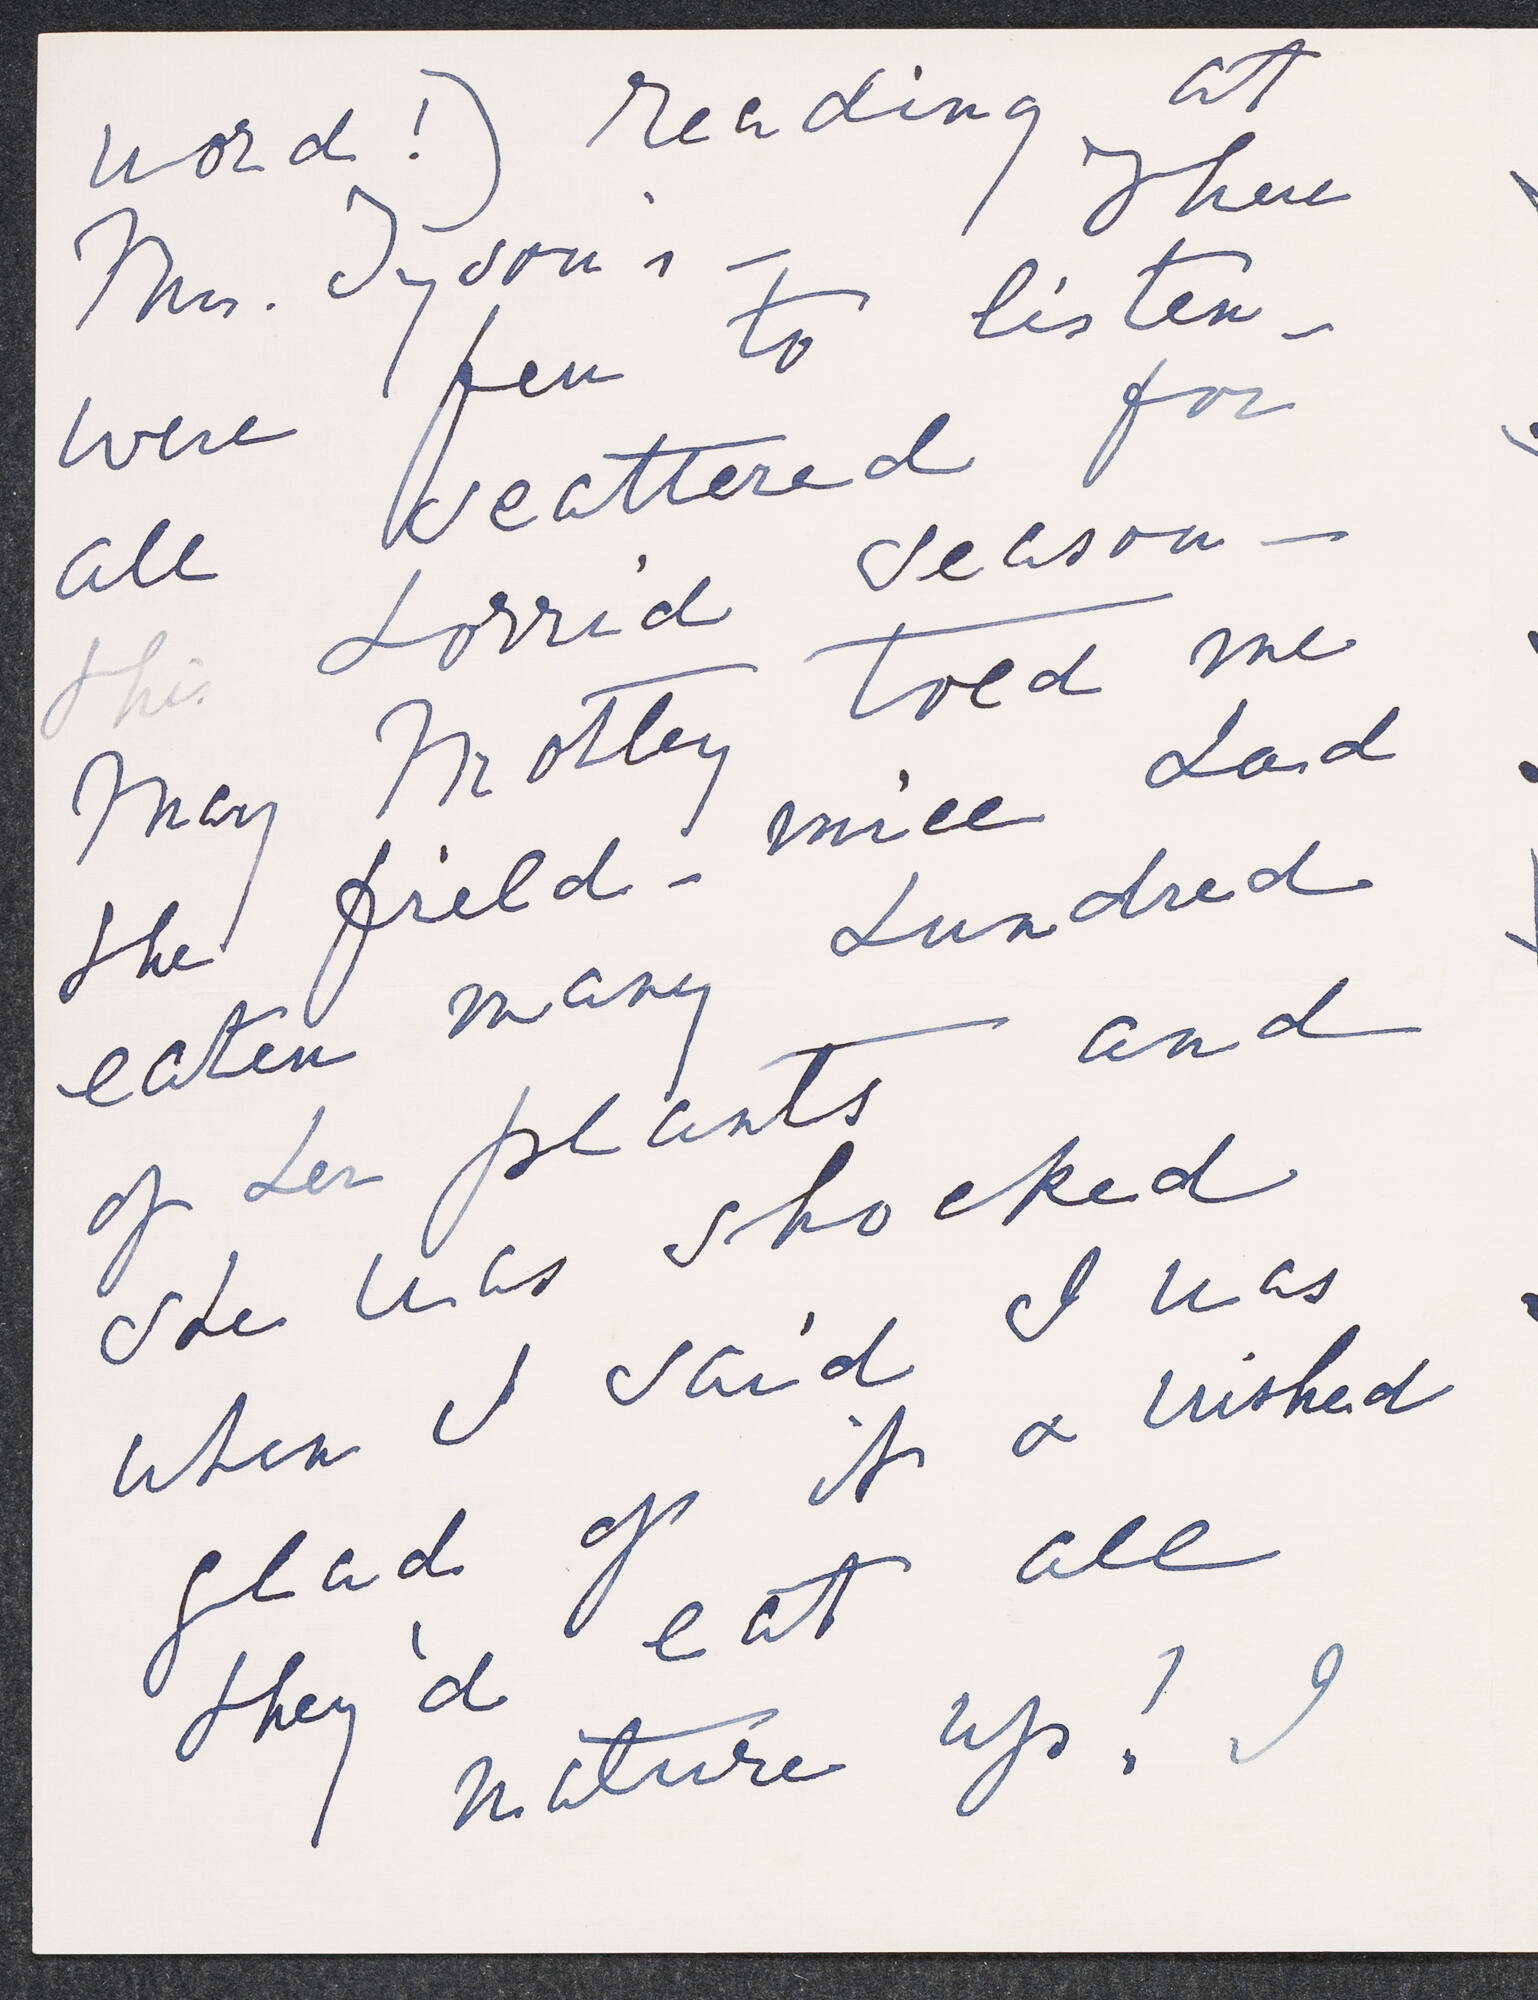 word!) reading at
Mrs. Tyson's — There
were few to listen —
all scattered for
this horrid season —
Mary Motley told me
the field-mice had
eaten many hundred
of her plants and
she was shocked
when I said I was
glad of it & wished
they'd eat all
nature up! I